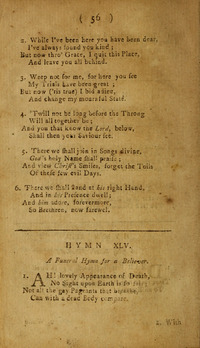 ( 56 )
2. While I've been here you have been dear,
I've always found you kind ;
But now thro' Grace, I quit this Place,
And leave you all behind.
3. Weep not for me, for here you see
My Trials have been great ;
But now ('tis true) I bid adieu,
And change my mournful State.
4. 'Twill not be long before the Throng
Will all together be ;
And you that know the Lord, below,
Shall then your Saviour see.
5. There we shall join in Songs divine,
God's holy Name shall praise ;
And view Christ's Smiles, forget the Toils
Of these few evil Days.
6. There we shall stand at his right Hand,
And in his Presence dwell ;
And him adore, forevermore,
So Brethren, now farewel.
HYMN XLV.
A Funeral Hymn for a Believer.
1. AH! lovely Appearance of Death,
No Sight upon Earth is so fair
Not all the gay Pageants that breathe,
Can with a dead Body compare.
2. With